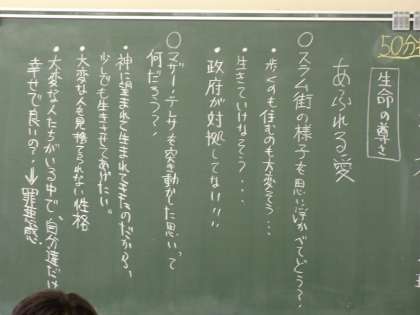 50分
生命の尊さ
あふれる愛
○スラム街の様子を思い浮かべてどう?
・歩くのも住むのも大変そう...
・生きていけなそう...
・政府が対処してない!!!
○マザー・テレサを突き動かした思いって
何だろう?
・神に望まれて生まれてきたのだから、
少しでも生きさせてあげたい。
・大変な人を見捨てられない性格
・大変な人たちがいる中で、自分達だけ
幸せで良いの?→罪悪感